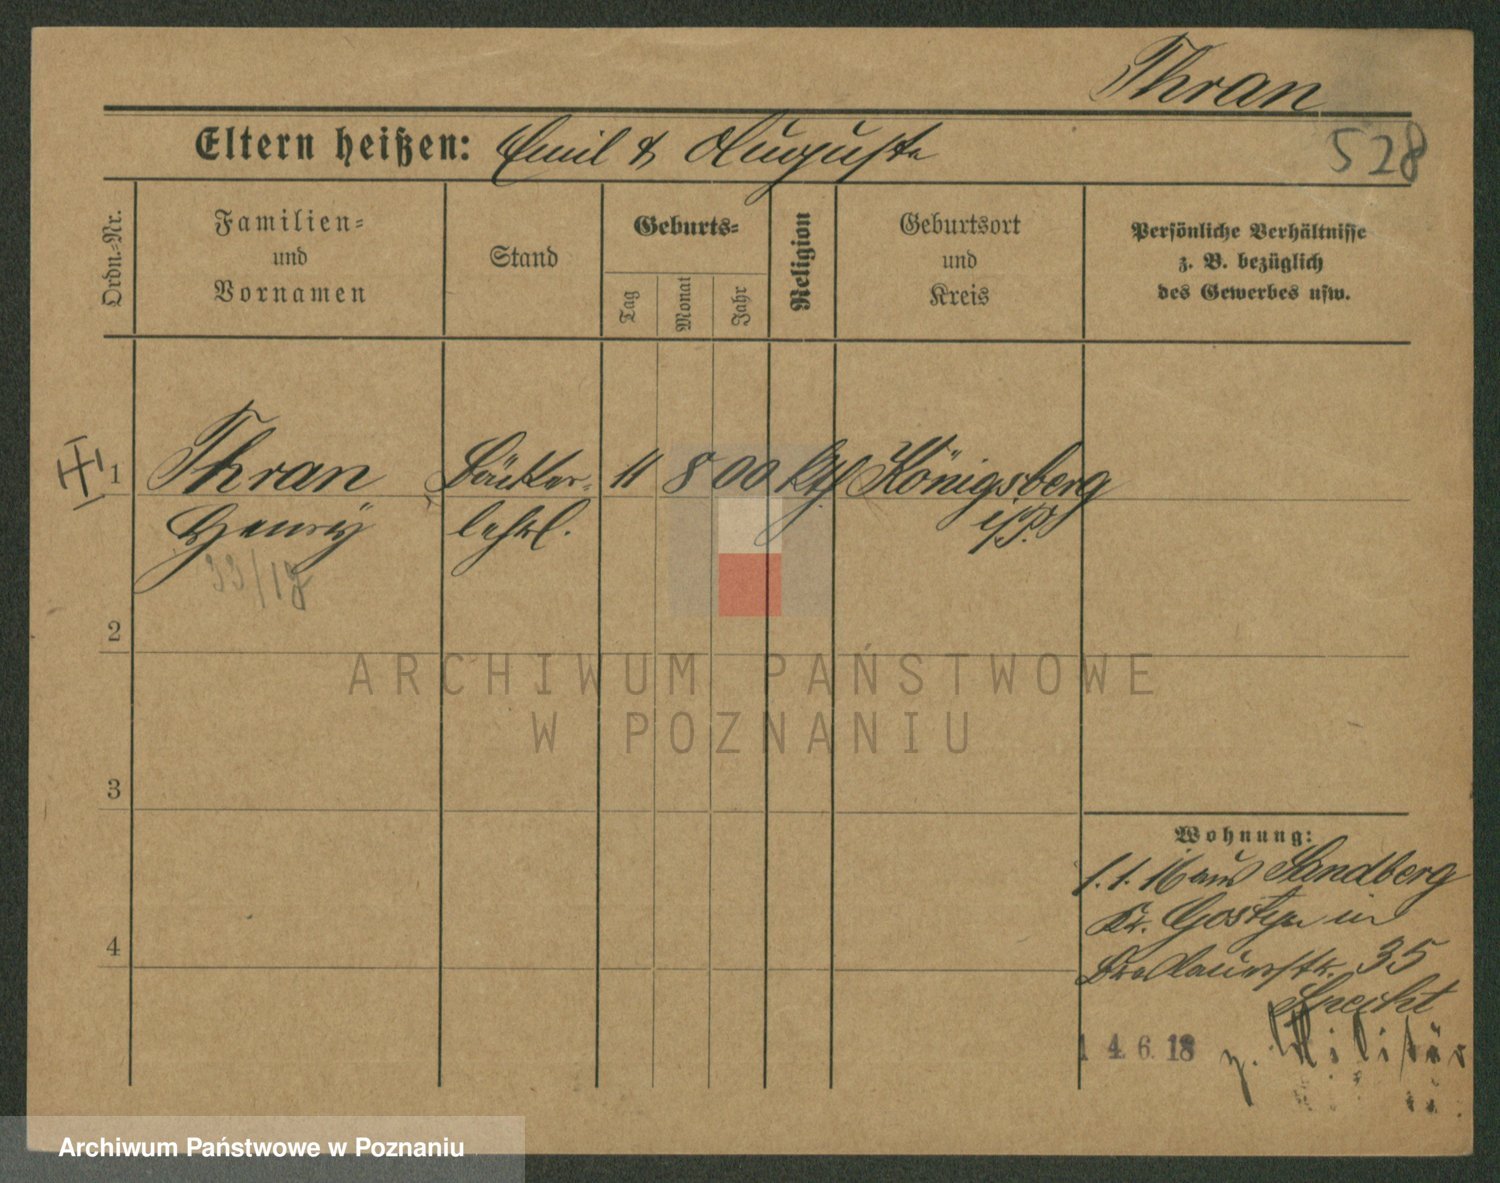 Thran
Eltern heißen: Emil & Auguste
528
Ordn.-Nr.
Familien-
und
Vornamen
Stand
Geburts-
Tag
Monat
Jahr
Religion
Geburtsort
und
Kreis
Persönliche Verhältnisse
z. B. bezüglich
des Gewerbes usw.
1 Thran Bäcker- 11 8 00 kth Königsberg
Henry lehrl. i/P.
33/18
2
ARCHIWUM PAŃSTWOWE
W POZNANIU
3
Wohnung:
1.1.16 aus Sandberg
Kr. Gostyn in
Breslauerstr. 35
Specht
4
14.6.18 z. Militär
Archiwum Państwowe w Poznaniu